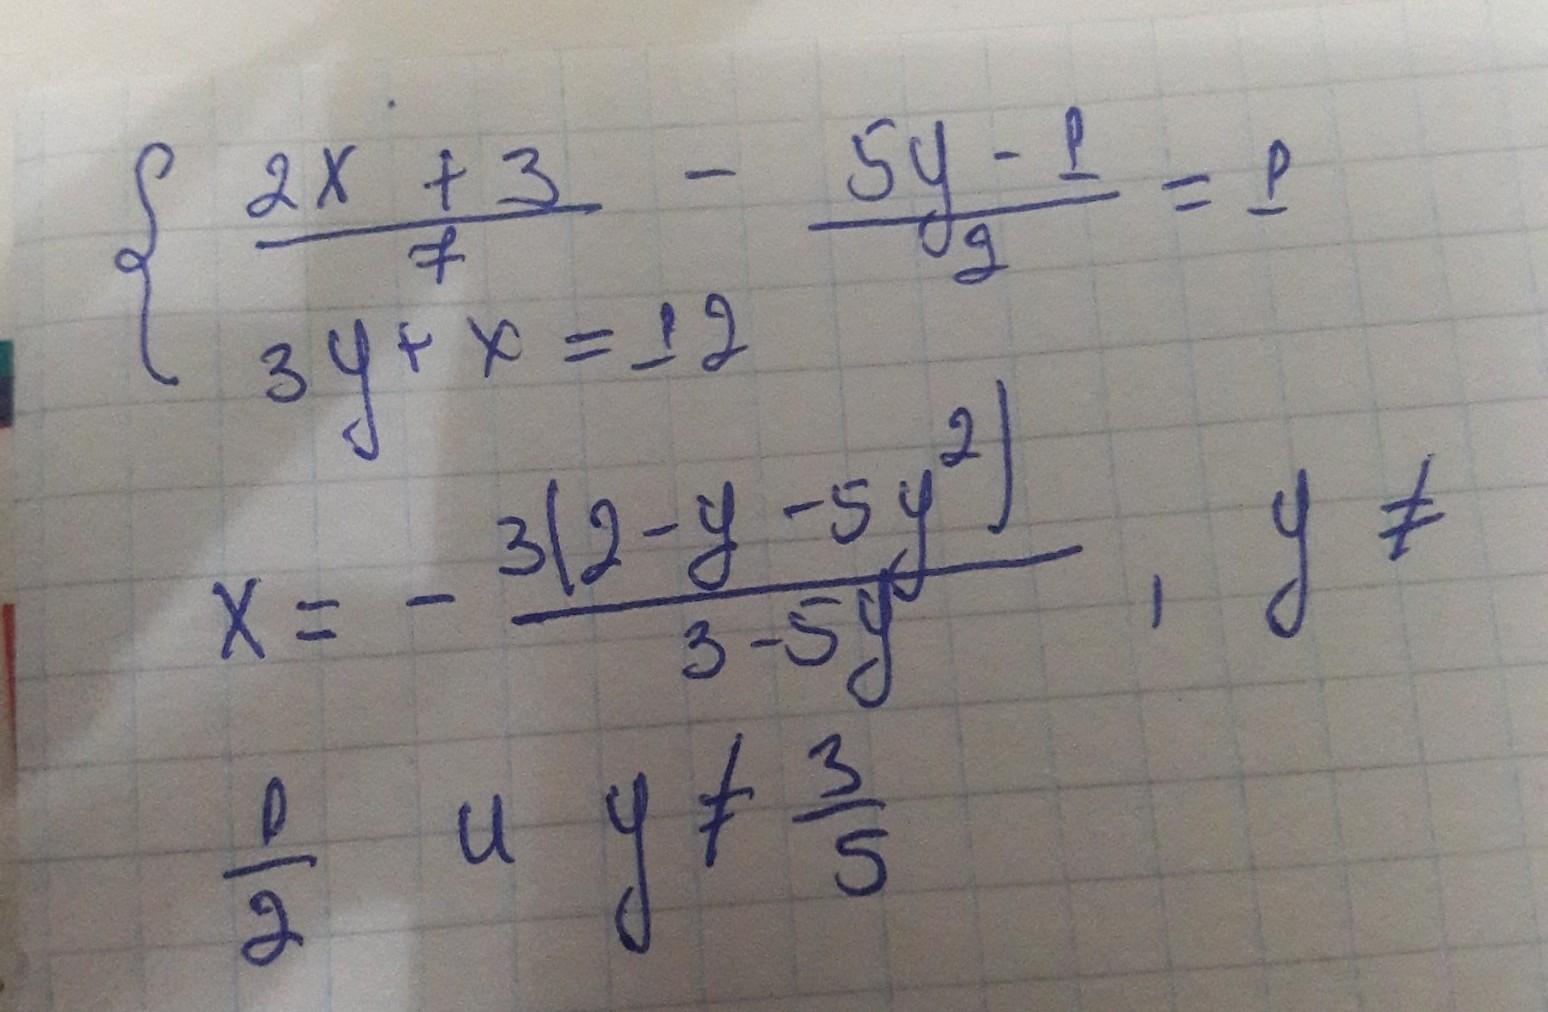 { (2x + 3)/7 - (5y - 1)/2 = 1
3y + x = 12
x = - 3(2 - y - 5y²)/(3 - 5y) , y ≠
1/2 и y ≠ 3/5